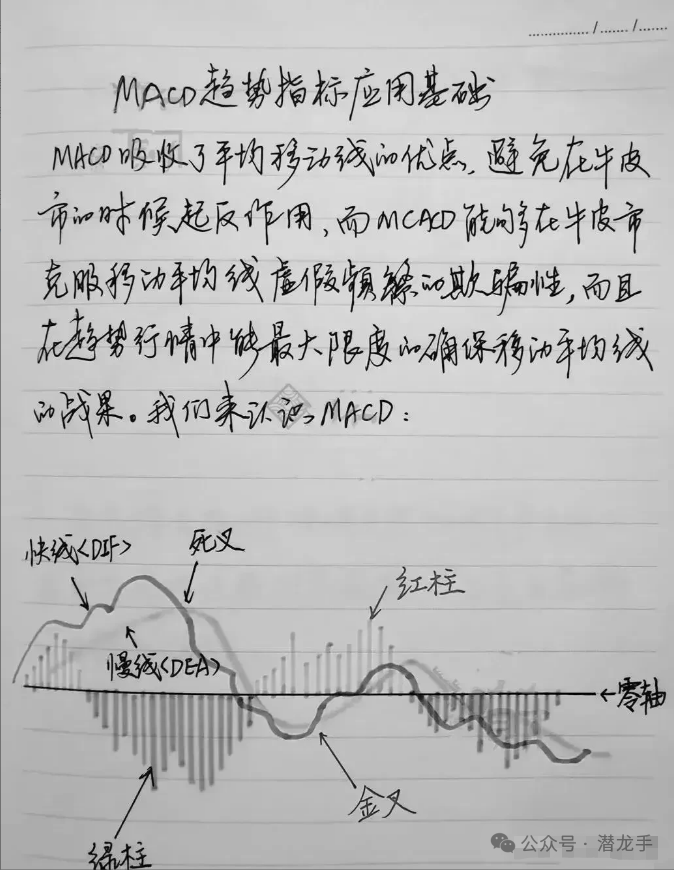 MACD趋势指标应用基础
MACD吸收了平均移动线的优点,避免在牛皮
市的时候起反作用,而MCACD能够在牛皮市
克服移动平均线虚假频繁的欺骗性,而且
在趋势行情中能最大限度的确保移动平均线
的战果。我们来认识MACD:
快线<DIF>
死叉
红柱
慢线<DEA>
←零轴
金叉
绿柱
公众号·潜龙手